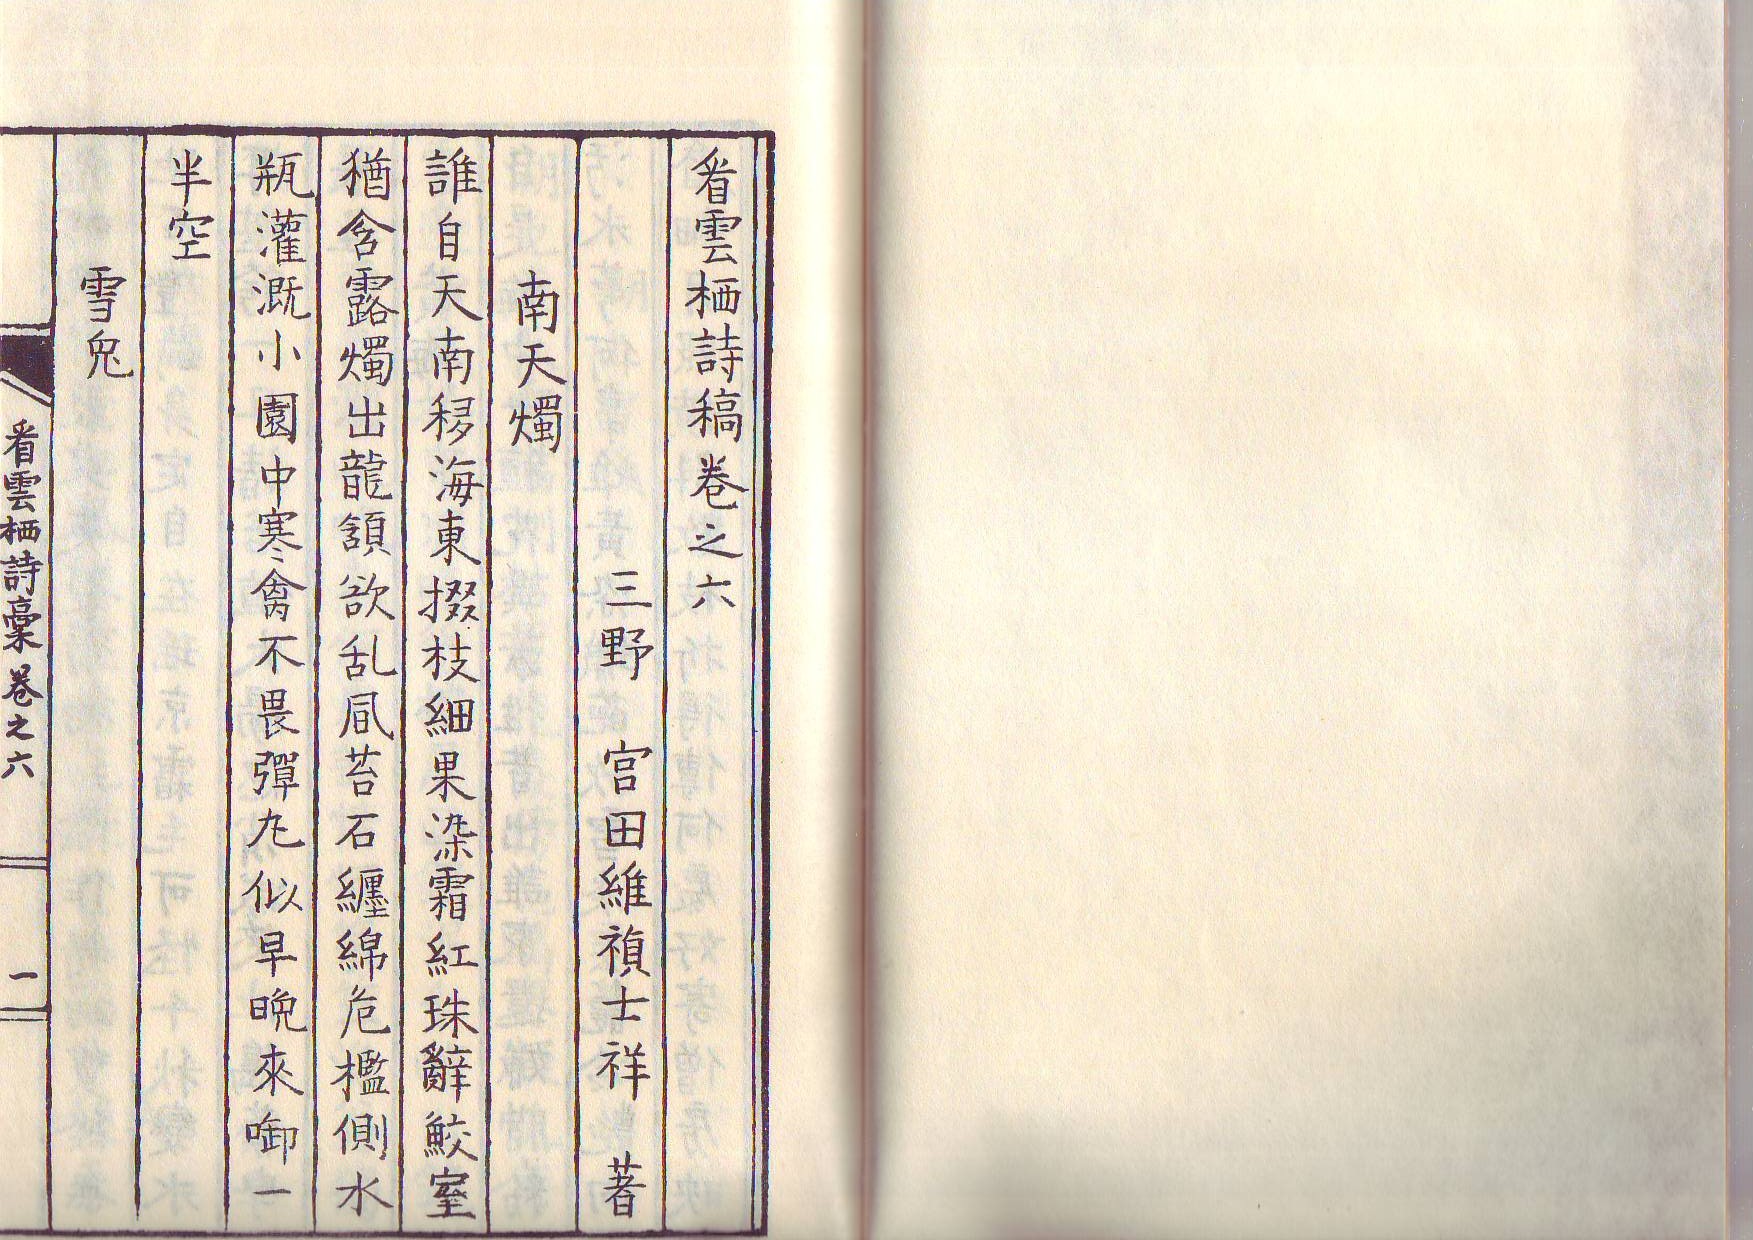 看雲栖詩稿卷之六
三野 宮田維禎士祥 著
南天燭
誰自天南移海東掇枝細果染霜紅珠辭鮫室
猶含露燭出龍頷欲乱凮苔石纒綿危檻側水
瓶灌溉小園中寒禽不畏彈丸似早晩來啣一
半空
雪兔
看雲栖詩稾 卷之六 一